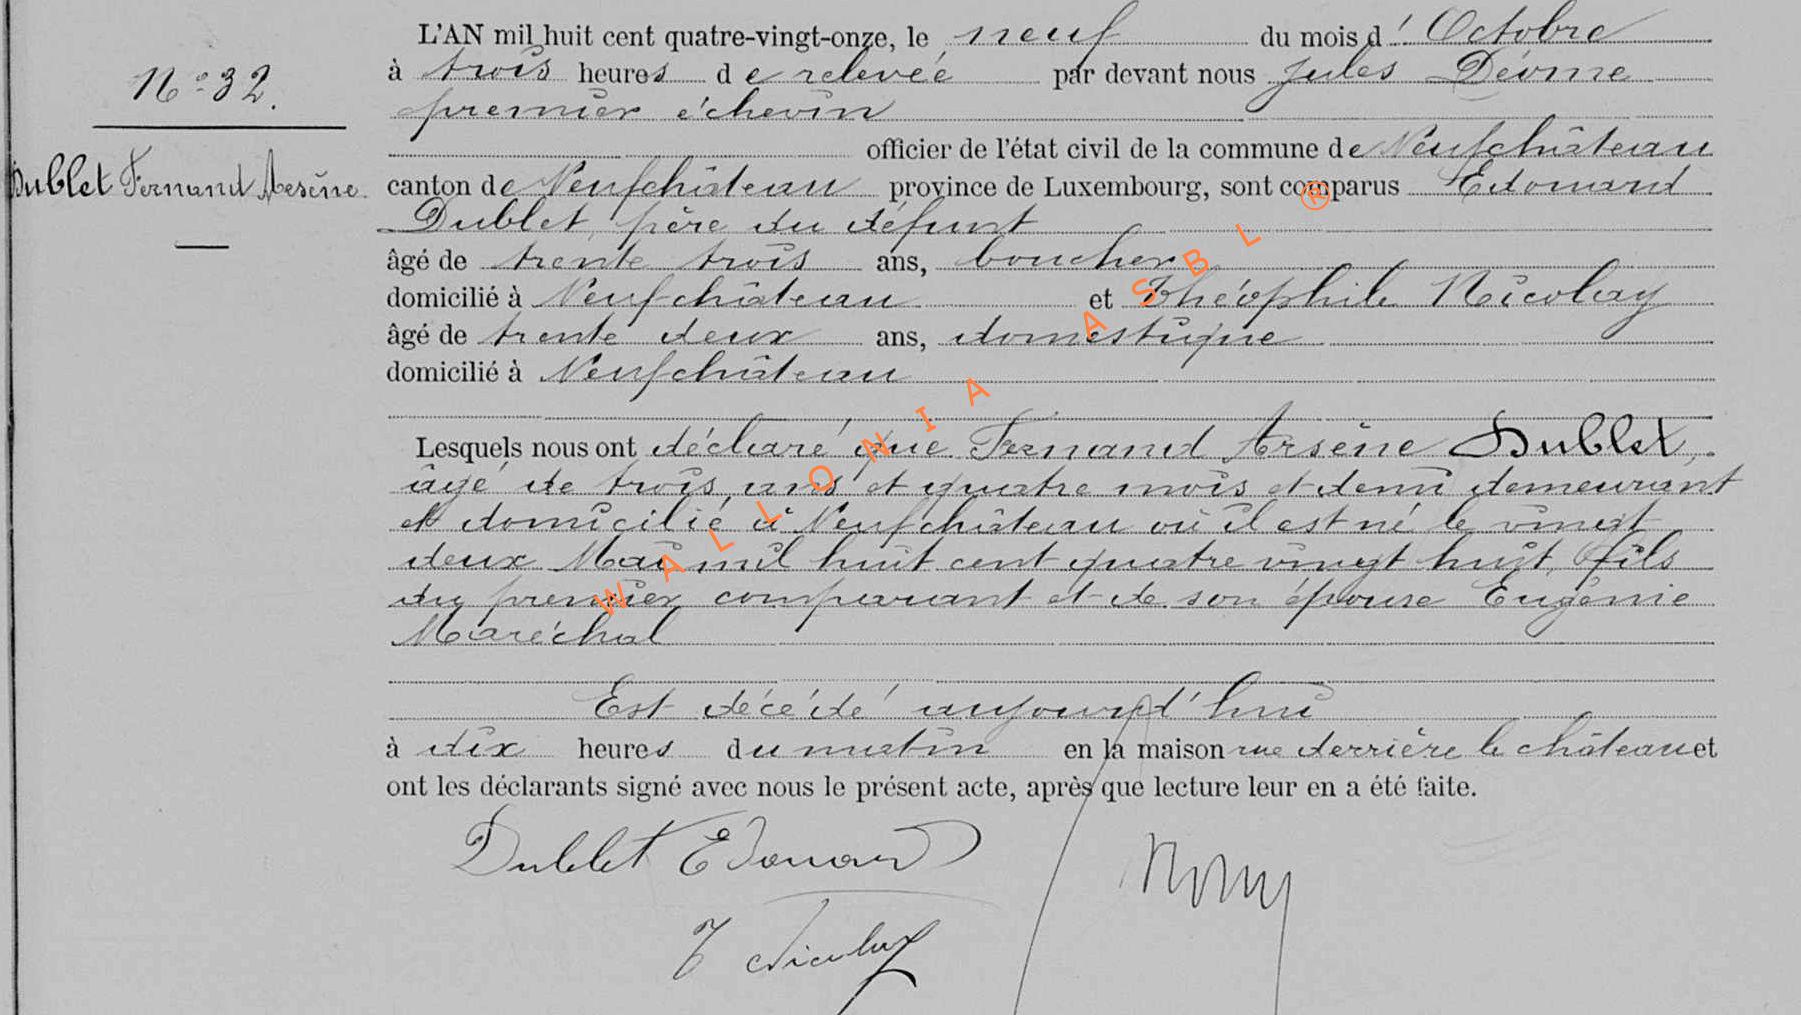 L'AN mil huit cent quatre-vingt-onze, le neuf du mois d' Octobre
N° 32.
à trois heures de relevée par devant nous Jules
premier échevin
officier de l'état civil de la commune de Neufchâteau
Dublet Fernand Arsène.
canton de Neufchâteau province de Luxembourg, sont comparus Edouard
Dublet, père du défunt
âgé de trente trois ans, boucher
domicilié à Neufchâteau et Théophile Nicolay
âgé de trente deux ans, domestique
domicilié à Neufchâteau
Lesquels nous ont déclaré que Fernand Arsène Dublet,
âgé de trois ans et quatre mois et demi demeurant
et domicilié à Neufchâteau où il est né le vingt
deux Mai mil huit cent quatre vingt huit, fils
du premier comparant et de son épouse Eugénie
Maréchal
Est décédé aujourd'hui
à dix heures du matin en la maison rue derrière le château et
ont les déclarants signé avec nous le présent acte, après que lecture leur en a été faite.
Dublet Edouard
T Nicolay
WALLONIA ASBL ®